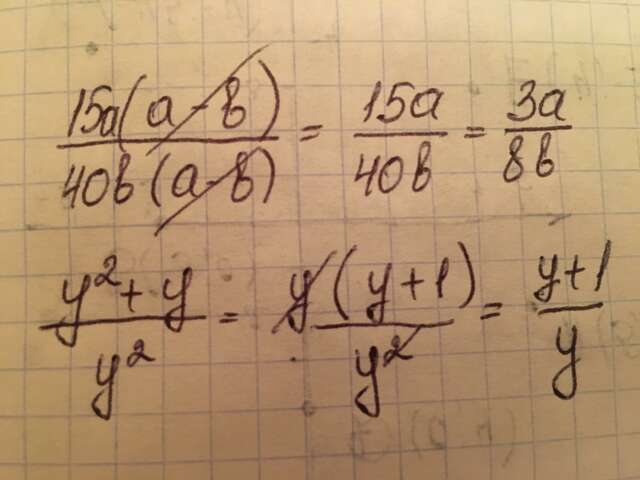 15a(a-b)/40b(a-b) = 15a/40b = 3a/8b
y²+y/y² = y(y+1)/y² = y+1/y